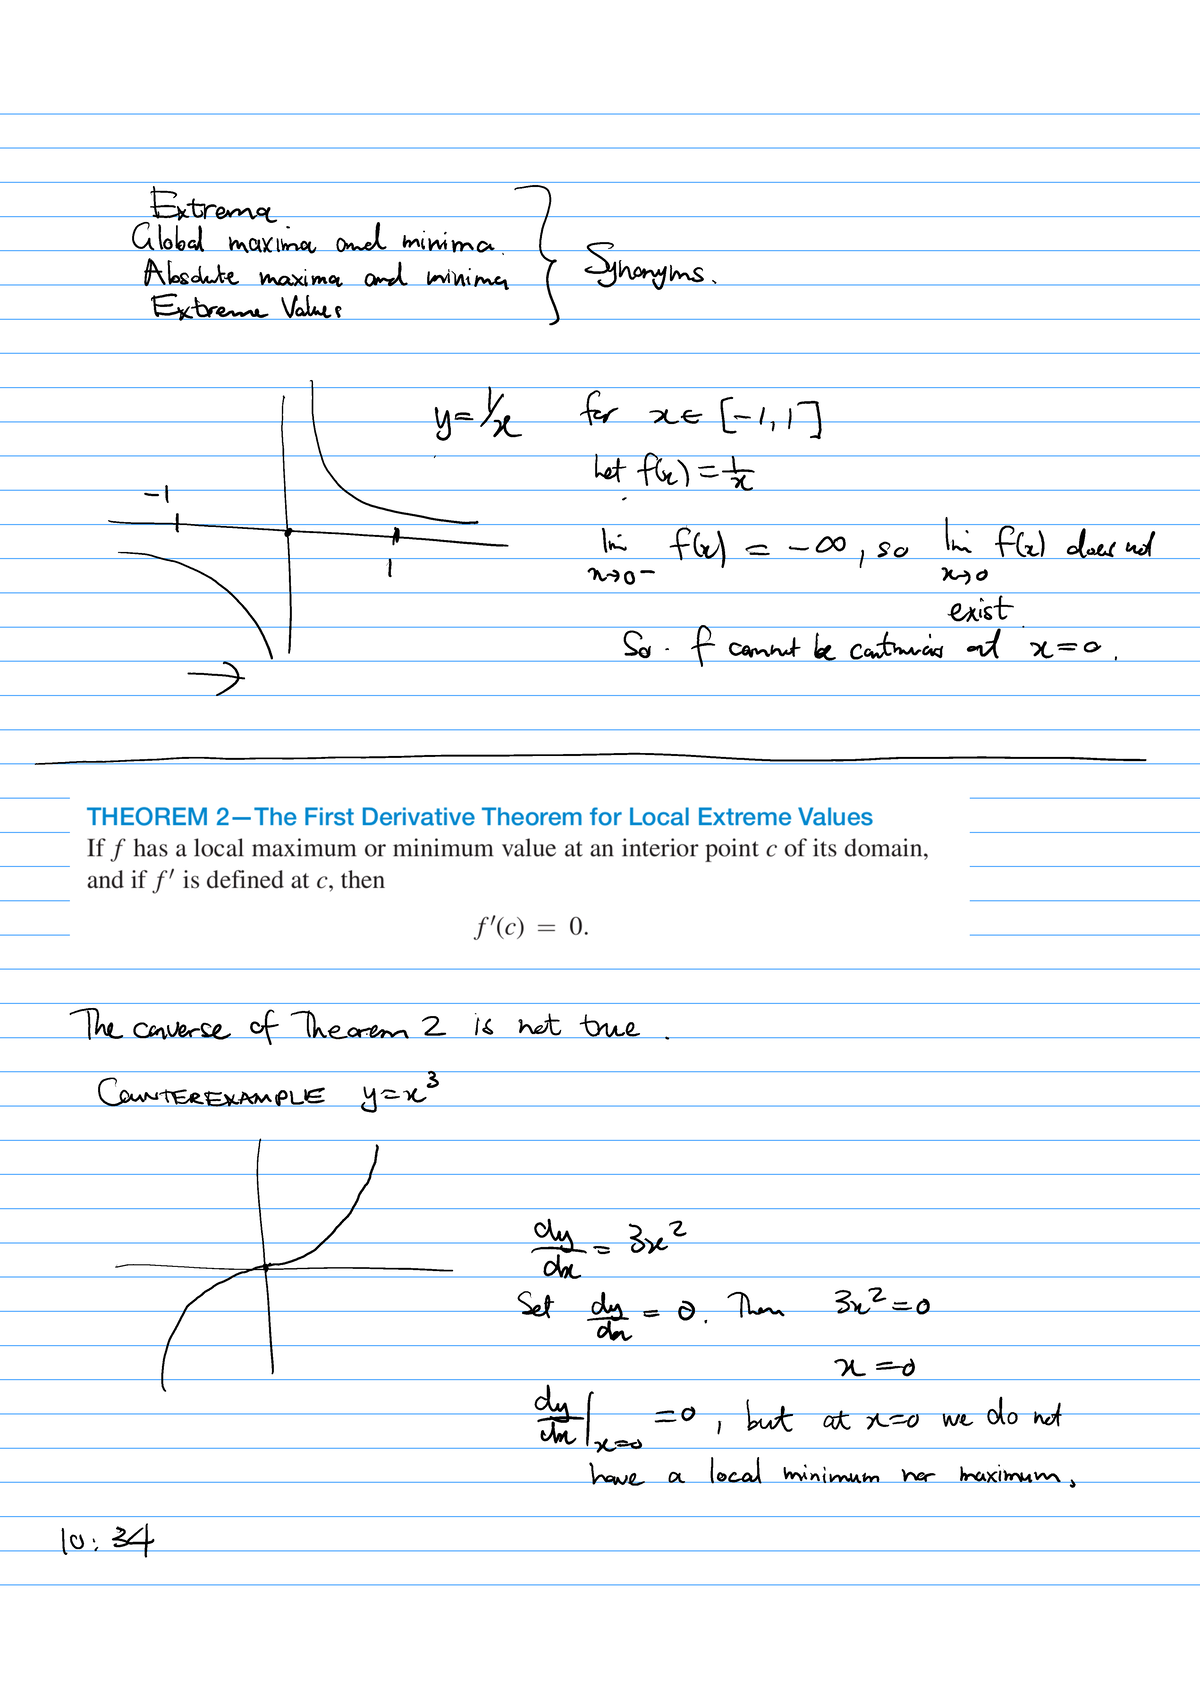 Extrema
Global maxima and minima.
Absolute maxima and minima
Extreme Values
Synonyms.
y=1/x for x∈ [-1,1]
Let f(x) = 1/x
-1
1
lim x→0- f(x) = -∞, so lim x→0 f(x) does not
exist
So f cannot be continuous at x=0.
THEOREM 2—The First Derivative Theorem for Local Extreme Values
If f has a local maximum or minimum value at an interior point c of its domain,
and if f′ is defined at c, then
f′(c) = 0.
The converse of Theorem 2 is not true.
COUNTEREXAMPLE y=x³
dy/dx = 3x²
Set dy/dx = 0. Then 3x²=0
x=0
dy/dx|x=0 =0, but at x=0 we do not
have a local minimum nor maximum.
10:34